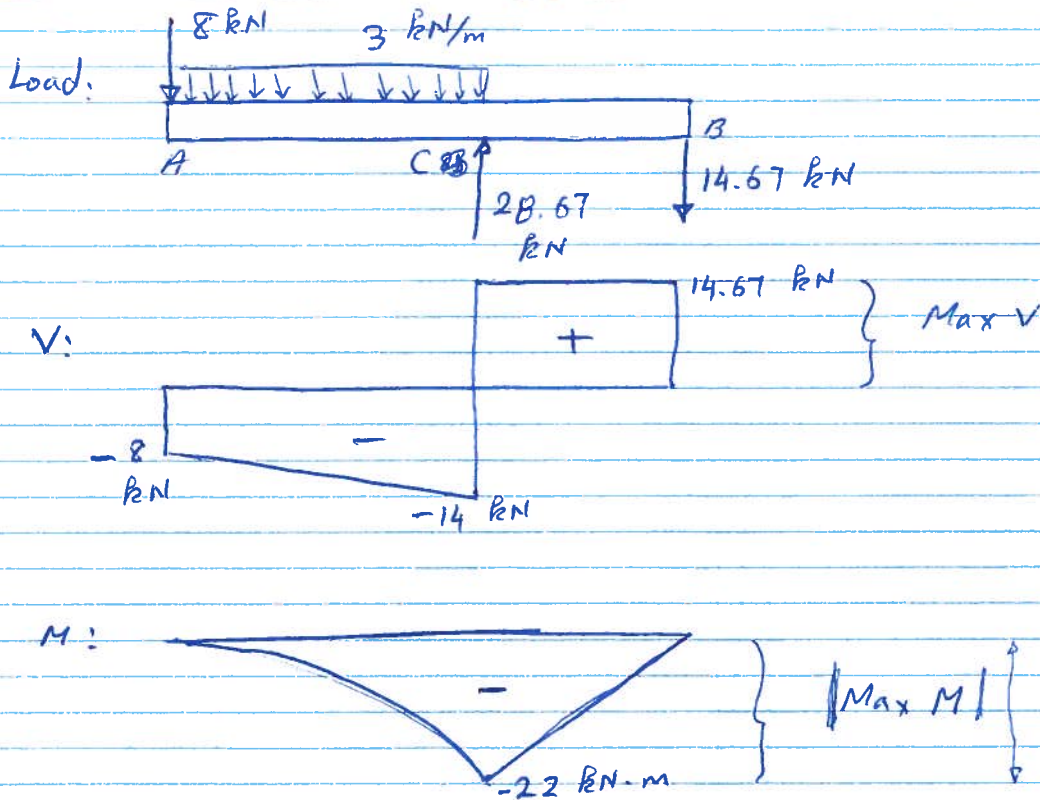 8 kN
3 kN/m
Load:
B
A
C
14.67 kN
28.67
kN
14.67 kN
Max V
V:
+
-
- 8
kN
-14 kN
M:
-
|Max M|
-22 kN·m